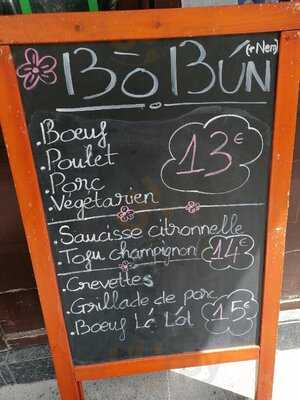 Bō BÚN (+ Nem)
.Boeuf
.Poulet
.Porc
.Végétarien
13€
.Saucisse citronnelle
.Tofu champignon
14€
.Crevettes
.Grillade de porc
.Boeuf Lá Lót
15€